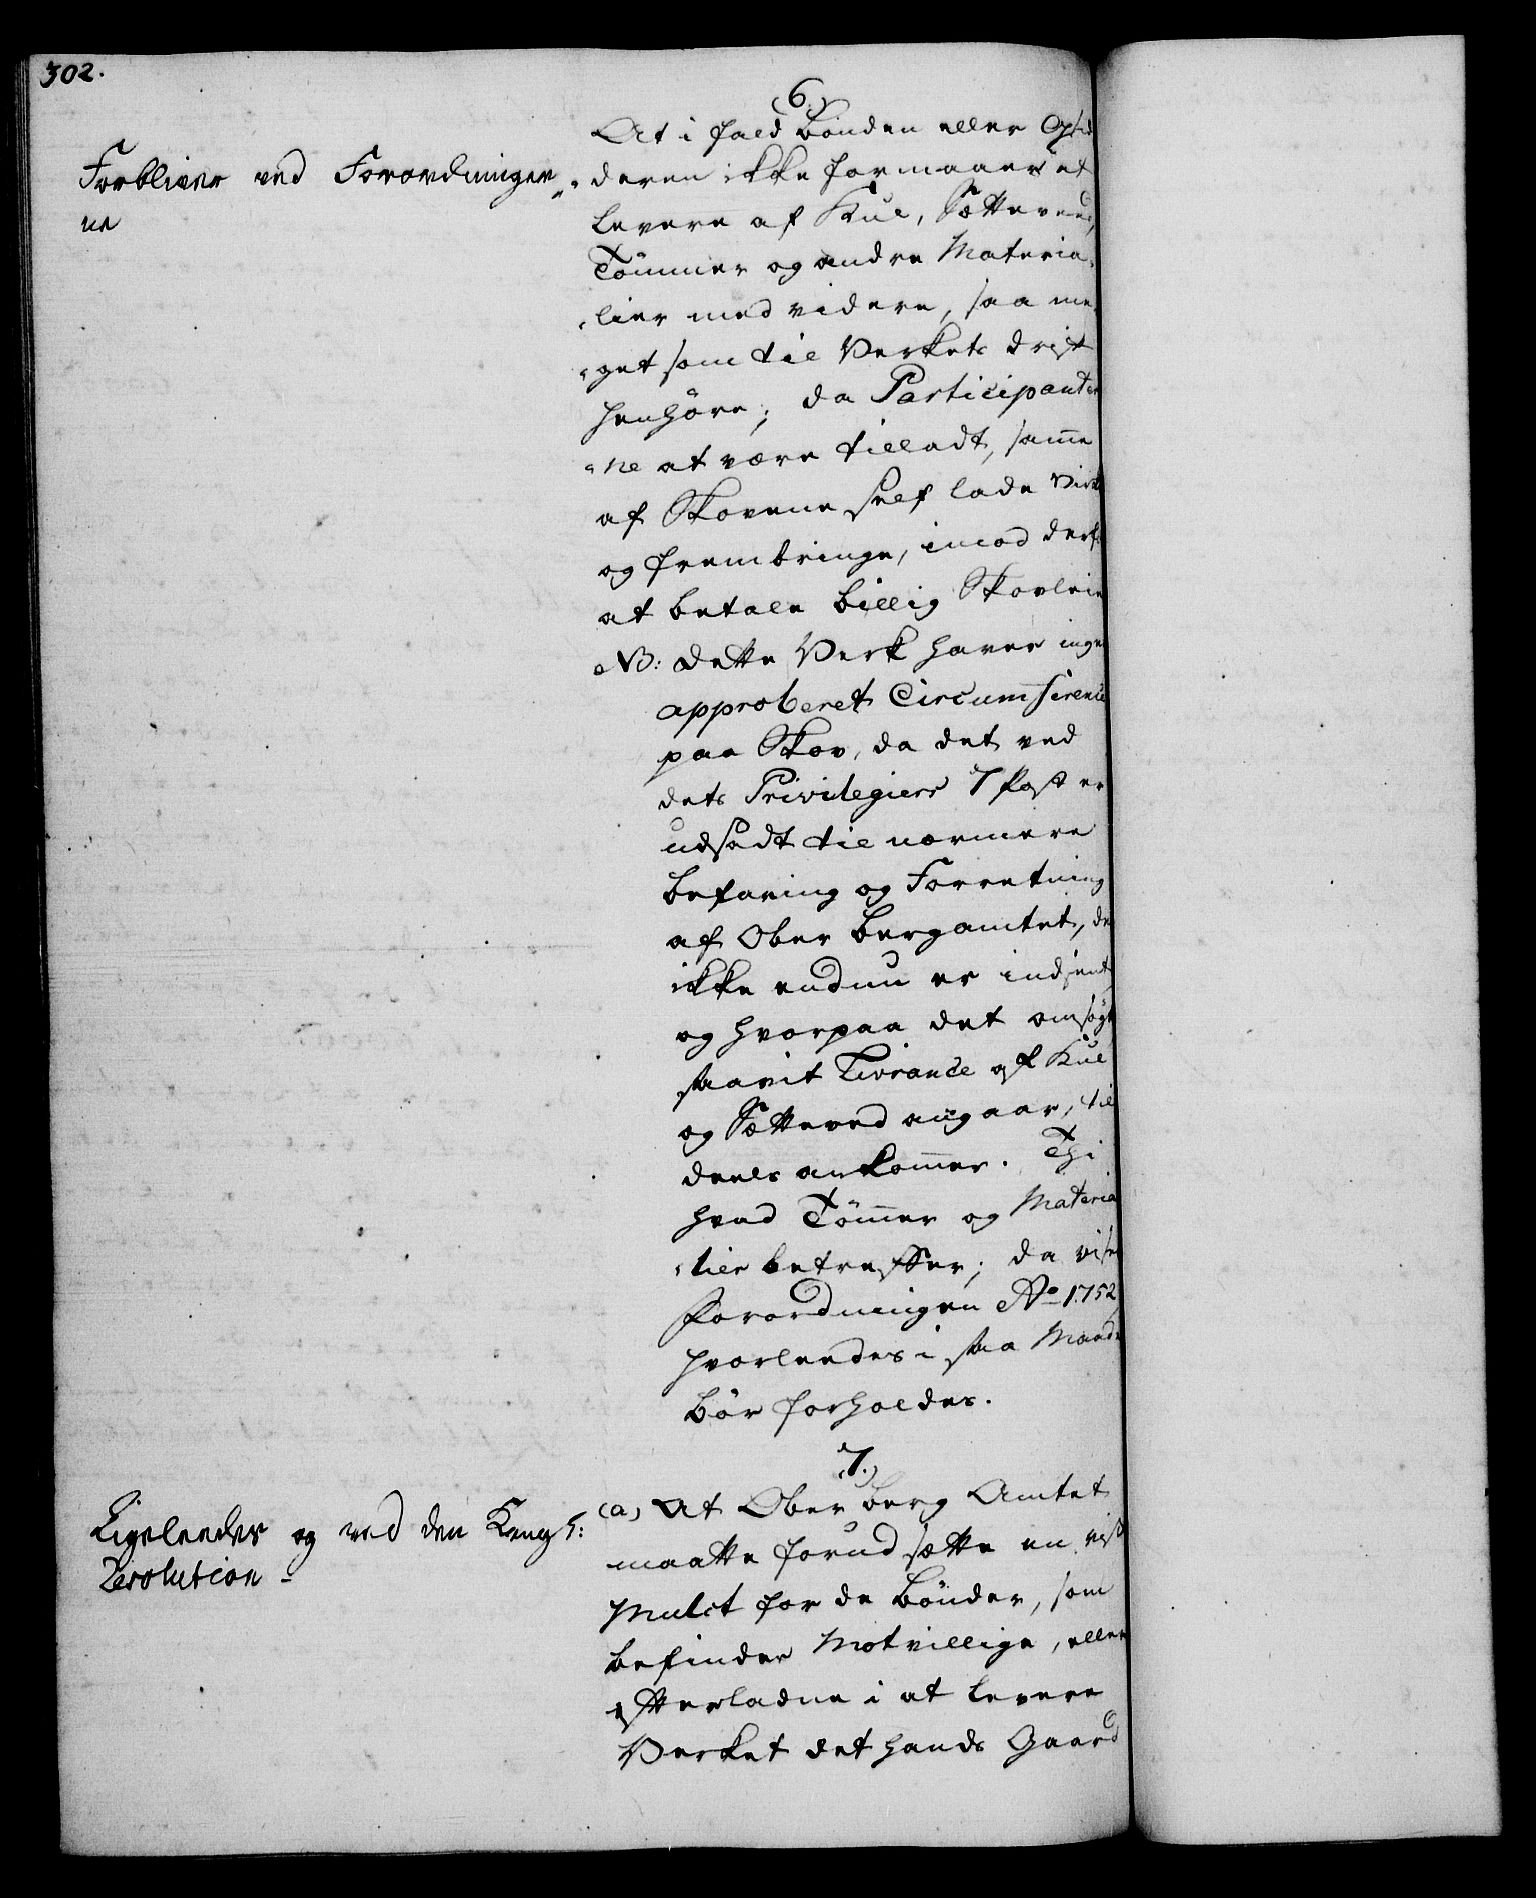 302.
Forbliver ved Forordninger„
ne
(6.)
At i fald bonden eller Opsid
„deren ikke formaaer at
levere af Kul, Sætteveed,
Tömmer og andre Materia„
„lier med videre, saa me„
„get som til Verkets drift
henhöre; da Participanter
„ne at være tilladt, samme
af Skovene self lade Virke
og frembringe, imod derfor
at betale billig Skovleie
NB: dette Verk haver ingen
approberet Circumference
paa Skov, da det ved
dets Privilegiers 7 Post er
udsadt til nærmere
befaring og Forretning
af Ober bergamtet, der
ikke endnu er indsendt
og hvorpaa det omsögte
saavit Livrance af Kul
og Sætteved angaar, til
deels ankom̄er. Thi
hvad Töm̄er og Materia
„lier betreffer; da viser
Forordningen Ao 1752,
hvorleedes i saa Maade
bör forholdes.
(7.)
Ligeleedes og ved den Kongl:
Resolution -
(a) At Ober berg Amtet
maatte forud sætte en vis
Mulct for de bönder, som
befindes Motvillige, eller
efterladne i at levere
Verket det hands Gaard